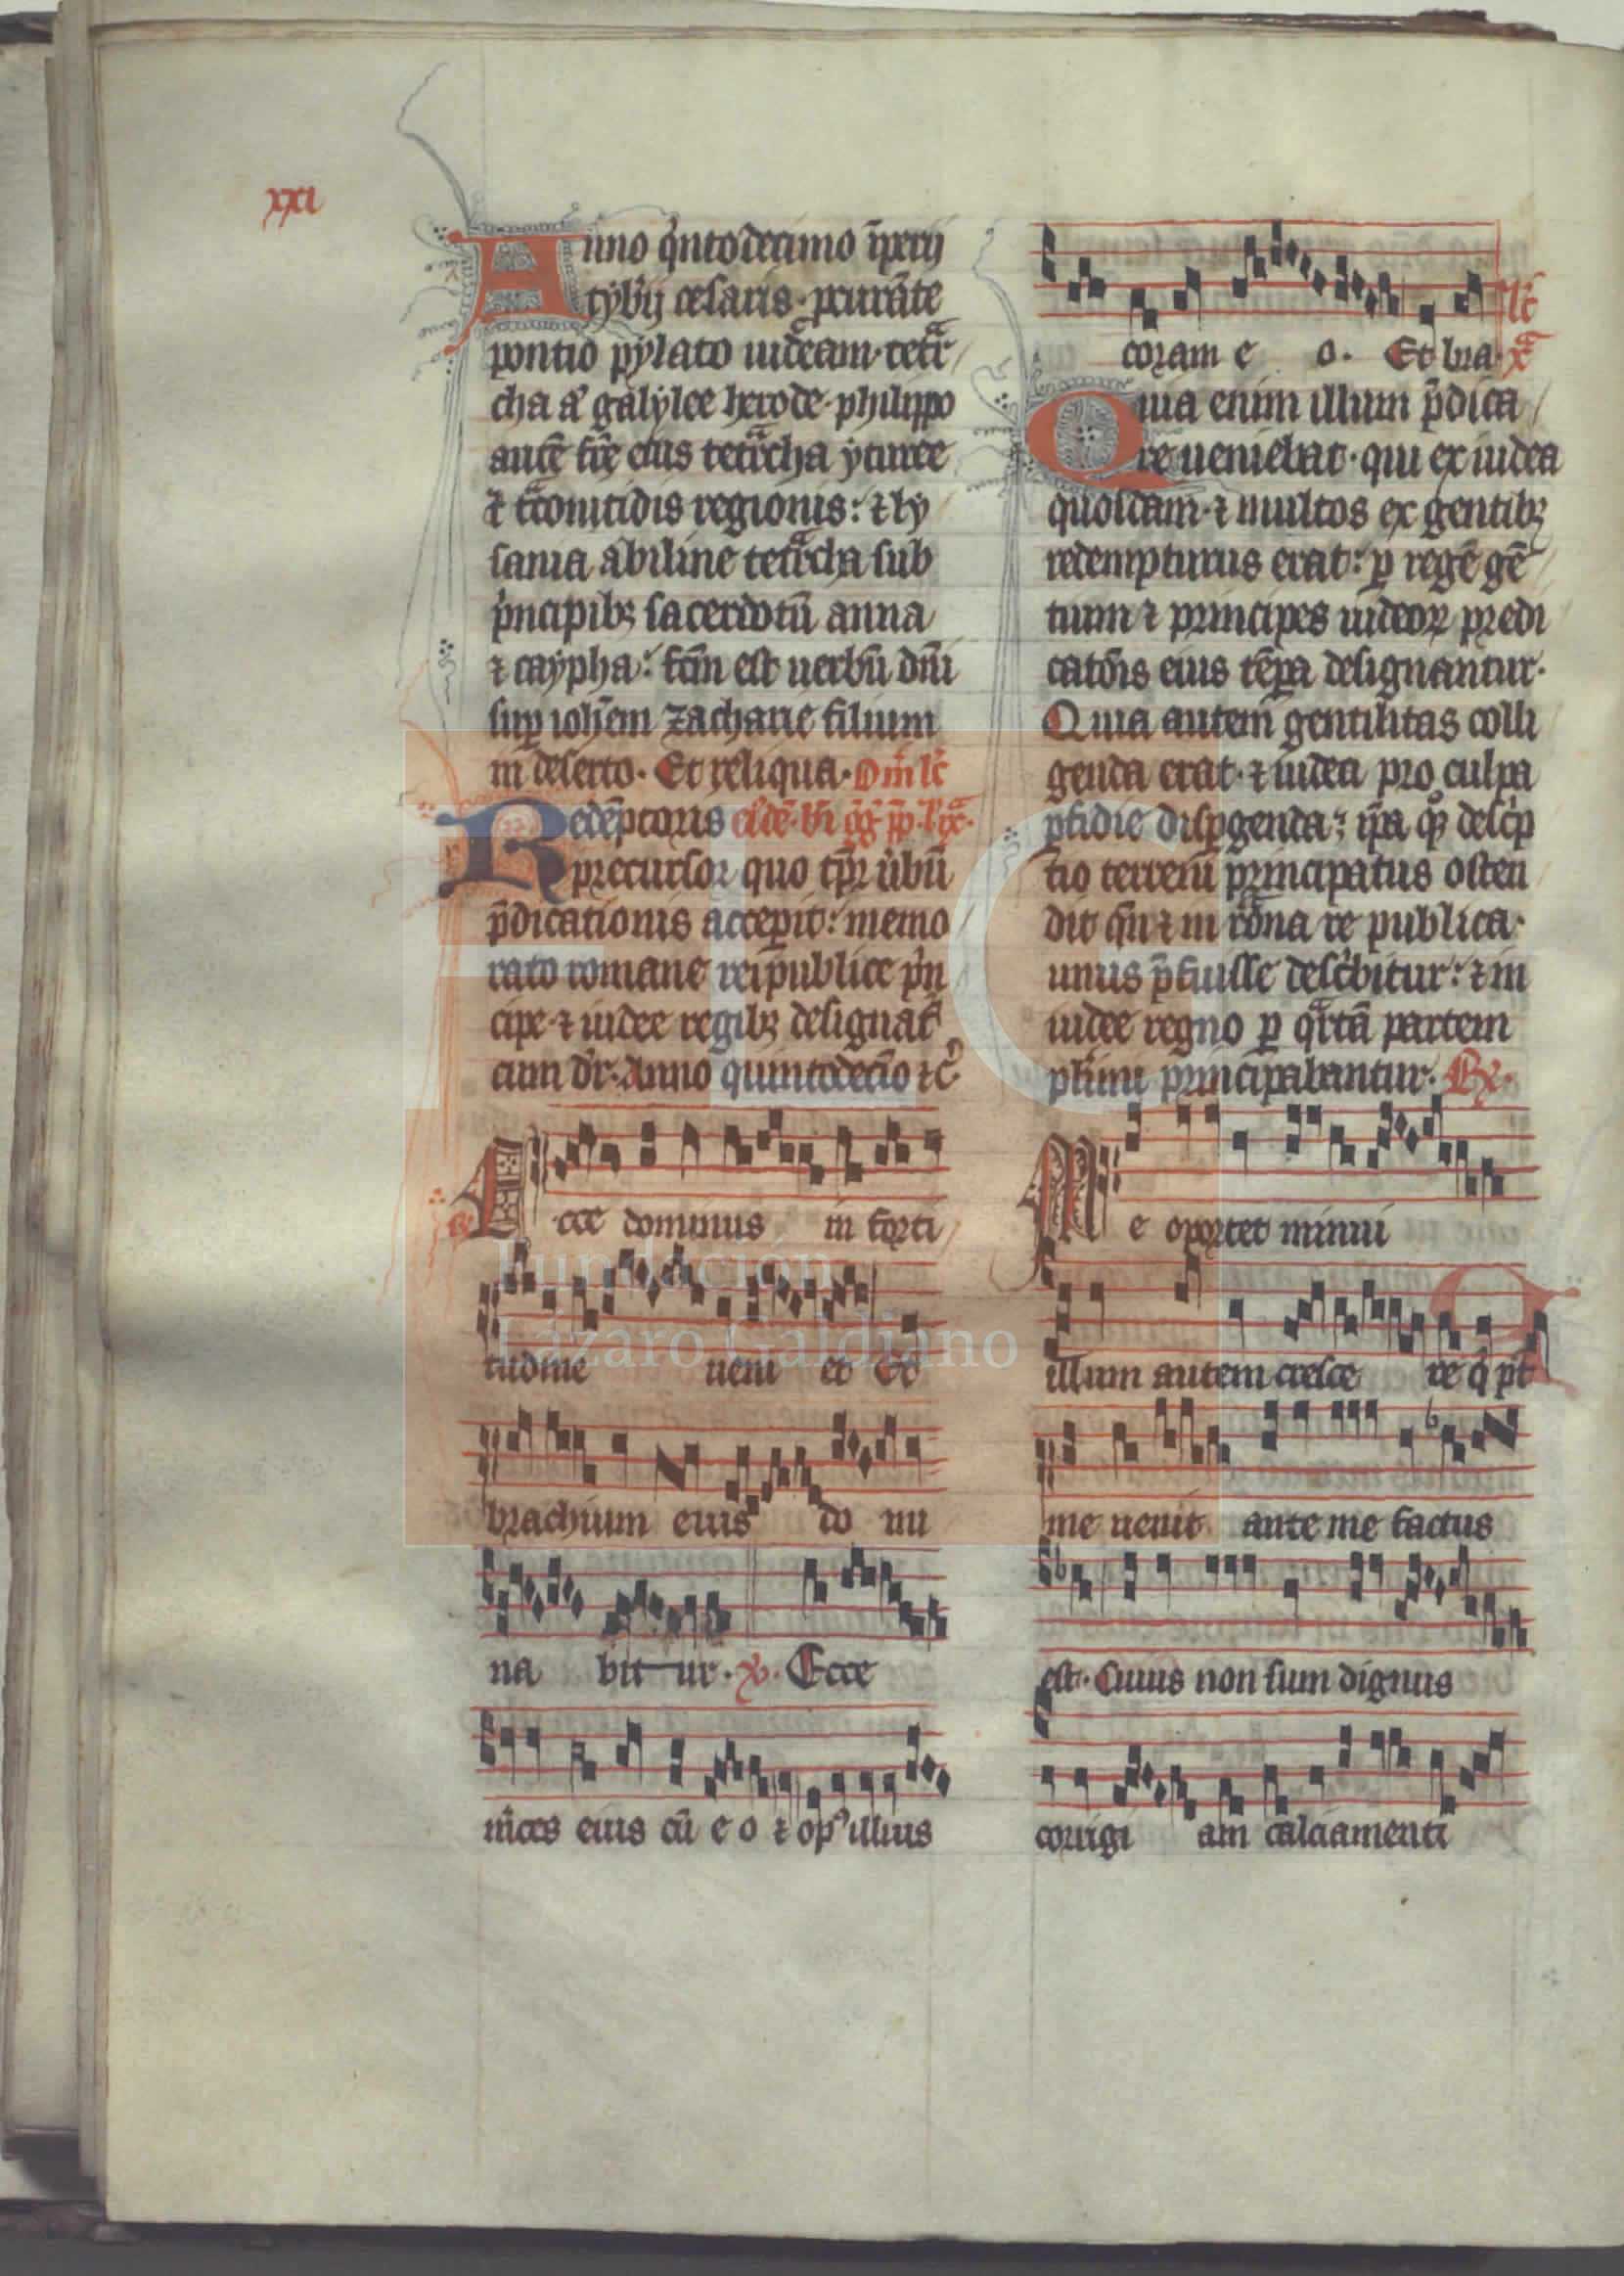 xxi
Anno q̇ntodecimo īperij
tyb̾ij cesaris · ꝓcurāte
pontio pylato iudeam · tetͣr
cha aͭ galylee herode · philippo
autē fr̄e eius tetͣrcha yturee
⁊ tͣconitidis regionis : ⁊ ly
sania abiline tetͣrcha sub
pͥncipibꝫ sacerdotū anna
⁊ caypha : fc̄m est uerbū dn̄i
suꝑ ioh̄em zacharie filium
in deserto · Et reliqua · Om̄ lc̄
Redēptoris eiͥdē · bt̄i gg̾ pp̄ · lͨͣ ·
precursor quo tp̄r ūbū
p̄dicationis accepit : memo
rato romane reipublice pͥn
cipe · ⁊ iudee regibꝫ designat᷑
cum dr̄ · Anno quintodecīo ⁊ c̾
R̷ Ecce dominus in forti
tudine ueni et Et
brachium eius do mi
na bit ur · ꝟ · Ecce
m̾ces eius cū e o ⁊ opꝰ illius
coram e o · Et bra · lc̄
xͣ
Quia enim illum p̄dica
re ueniebat · qui ex iudea
quosdam · ⁊ multos ex gentibꝫ
redempturus erat : ꝑ regē gē
tium ⁊ principes iudeoꝝ predi
catōis eius tēꝑa designantur ·
Quia autem gentilitas colli
genda erat · ⁊ iudea pro culpa
ꝑfidie disꝑgenda : ip̄a qͦꝫ descͥp
tio terreni principatus osten
dit qm̄ ⁊ in rōͣna re publica ·
unus p̄fuisse descͥbitur : ⁊ in
iudee regno ꝑ qͣrtā partem
pl̾imi principabantur · R̷x ·
Me oportet minui
illum autem cresce re q̇ pͭ
me uenit ante me factus
est · Cuius non sum dignus
corrigi am calciamenti
Fundación
Lázaro Galdiano
FLG